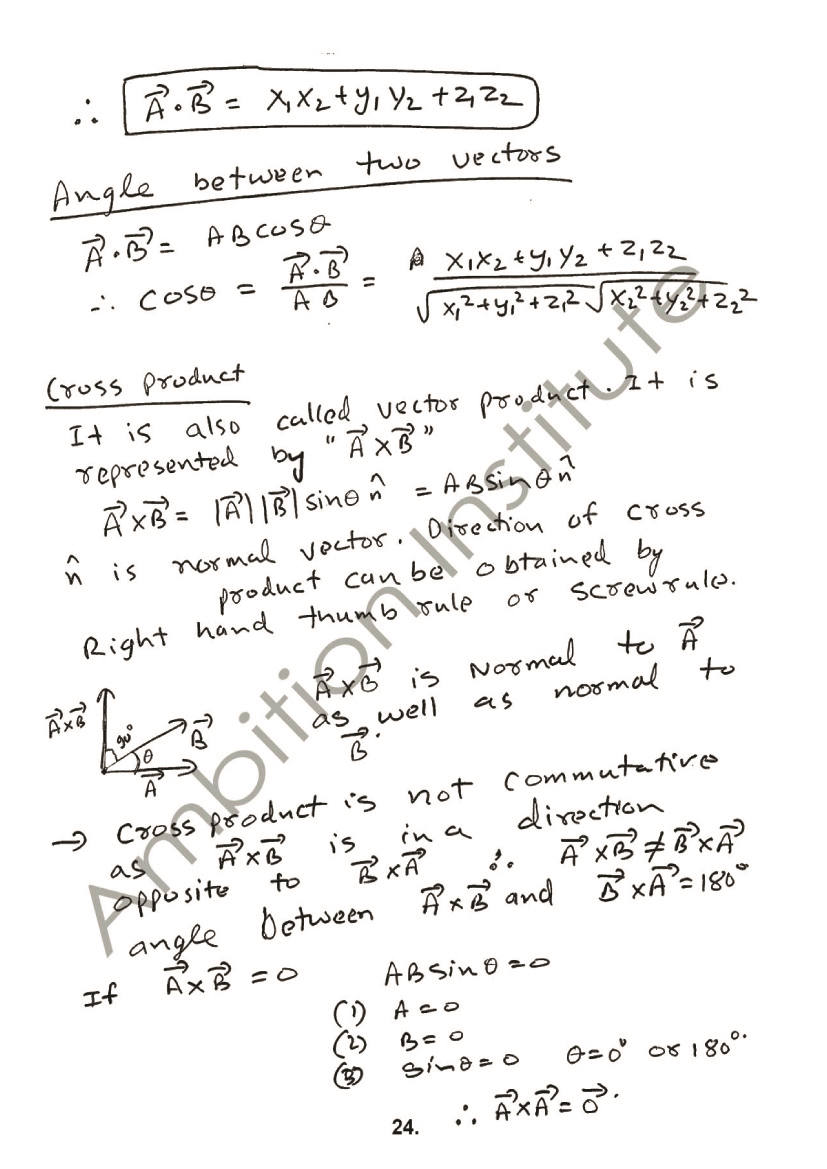 ∴ A⃗·B⃗ = x₁x₂+y₁y₂+z₁z₂
Angle between two vectors
A⃗·B⃗ = ABcosθ
∴ cosθ = A⃗·B⃗ / AB = x₁x₂+y₁y₂+z₁z₂ / √x₁²+y₁²+z₁² √x₂²+y₂²+z₂²
Cross product
It is also called vector product. It is
represented by "A⃗×B⃗"
A⃗×B⃗ = |A⃗||B⃗|sinθ n̂ = ABsinθ n̂
n̂ is normal vector. Direction of cross
product can be obtained by
Right hand thumb rule or screw rule.
A⃗×B⃗ 90° θ B⃗ A⃗
A⃗×B⃗ is Normal to A⃗
as well as normal to
B⃗.
→ Cross product is not commutative
as A⃗×B⃗ is in a direction
opposite to B⃗×A⃗ ∴ A⃗×B⃗≠B⃗×A⃗
angle between A⃗×B⃗ and B⃗×A⃗=180°
If A⃗×B⃗ = 0 ABsinθ=0
(1) A=0
(2) B=0
(3) sinθ=0 θ=0° or 180°.
∴ A⃗×A⃗=0⃗.
24.
Ambition Institute